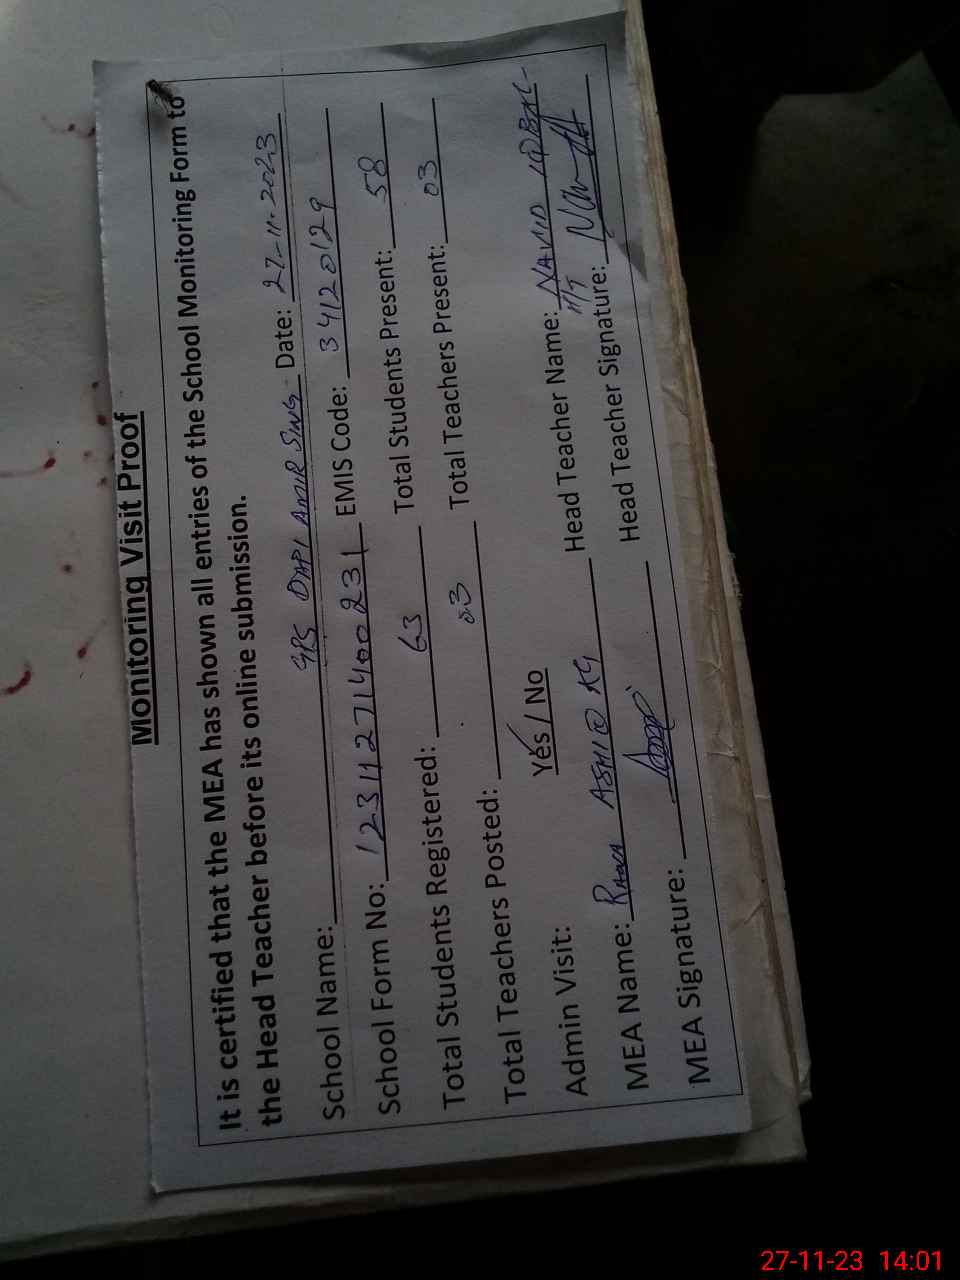 Monitoring Visit Proof
It is certified that the MEA has shown all entries of the School Monitoring Form to
the Head Teacher before its online submission.
School Name: GPS DAPI AMIR SING Date: 27-11-2023
School Form No: 12311271400231 EMIS Code: 34120129
Total Students Registered: 63 Total Students Present: 58
Total Teachers Posted: 03 Total Teachers Present: 03
Admin Visit: Yes / No
MEA Name: Head Teacher Name: NAVID
MEA Signature: Head Teacher Signature:
27-11-23 14:01